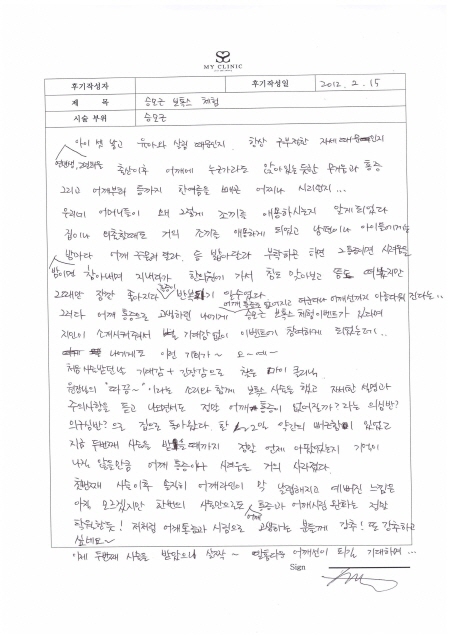 MY CLINIC
후기작성자 후기작성일 2012. 2. 15
제 목 승모근 보톡스 체험
시술 부위 승모근
아이 셋 낳고 육아와 살림 때문인지 항상 구부정한 자세 때문인지
출산이후 어깨에 누군가라도 앉아있는듯한 무거움과 통증
그리고 어깨부터 등까지 한여름을 빼곤 어찌나 시리던지...
우리네 어머니들이 왜 그렇게 조끼를 애용하시는지 알게되었다
집이나 외출할때도 거의 조끼를 애용하게 되었고 남편이나 아이들에게
밤마다 어깨 주물러 달라. 등 밟아달라 부탁하곤 하면 그때뿐
참아내며 지내다가 한의원가서 침도 맞아보고
그때만 잠깐 좋아지다 반복
그러다 어깨 통증으로 고생하던 나에게 승모근 보톡스 체험이벤트가 있다며
지인이 소개시켜줘서 별 기대감 없이 이벤트에 참여하게 되었는데..
나에게도 이런 기회가~ 오~예~
처음 시술받던날 기대감 + 긴장감으로 찾은 마이 클리닉.
원장님의 "따끔~" 이라는 소리와 함께 보톡스 시술을 했고 자세한 설명과
주의사항을 듣고 나오면서도 정말 어깨통증이 없어질까? 라는 의심반?
의구심반?으로 집으로 돌아왔다. 한 1~2주 약간의 뻐근함이 있었고
지금 두번째 시술을 받을때까지 정말 언제 아팠었는지 기억이
나지 않을만큼 어깨 통증이나 시려움은 거의 사라졌다.
첫번째 시술이후 솔직히 어깨라인이 막 날렵해지고 예뻐진 느낌은
아직 모르겠지만 한번의 시술만으로도 통증과 어깨시림 완화는 정말
탁월한듯! 저처럼 어깨통증과 시림으로 고생하는 분들께 강추! 또 강추하고
싶네요~
이제 두번째 시술을 받았으니 살짝~ 아름다운 어깨선이 되길 기대하며...
Sign